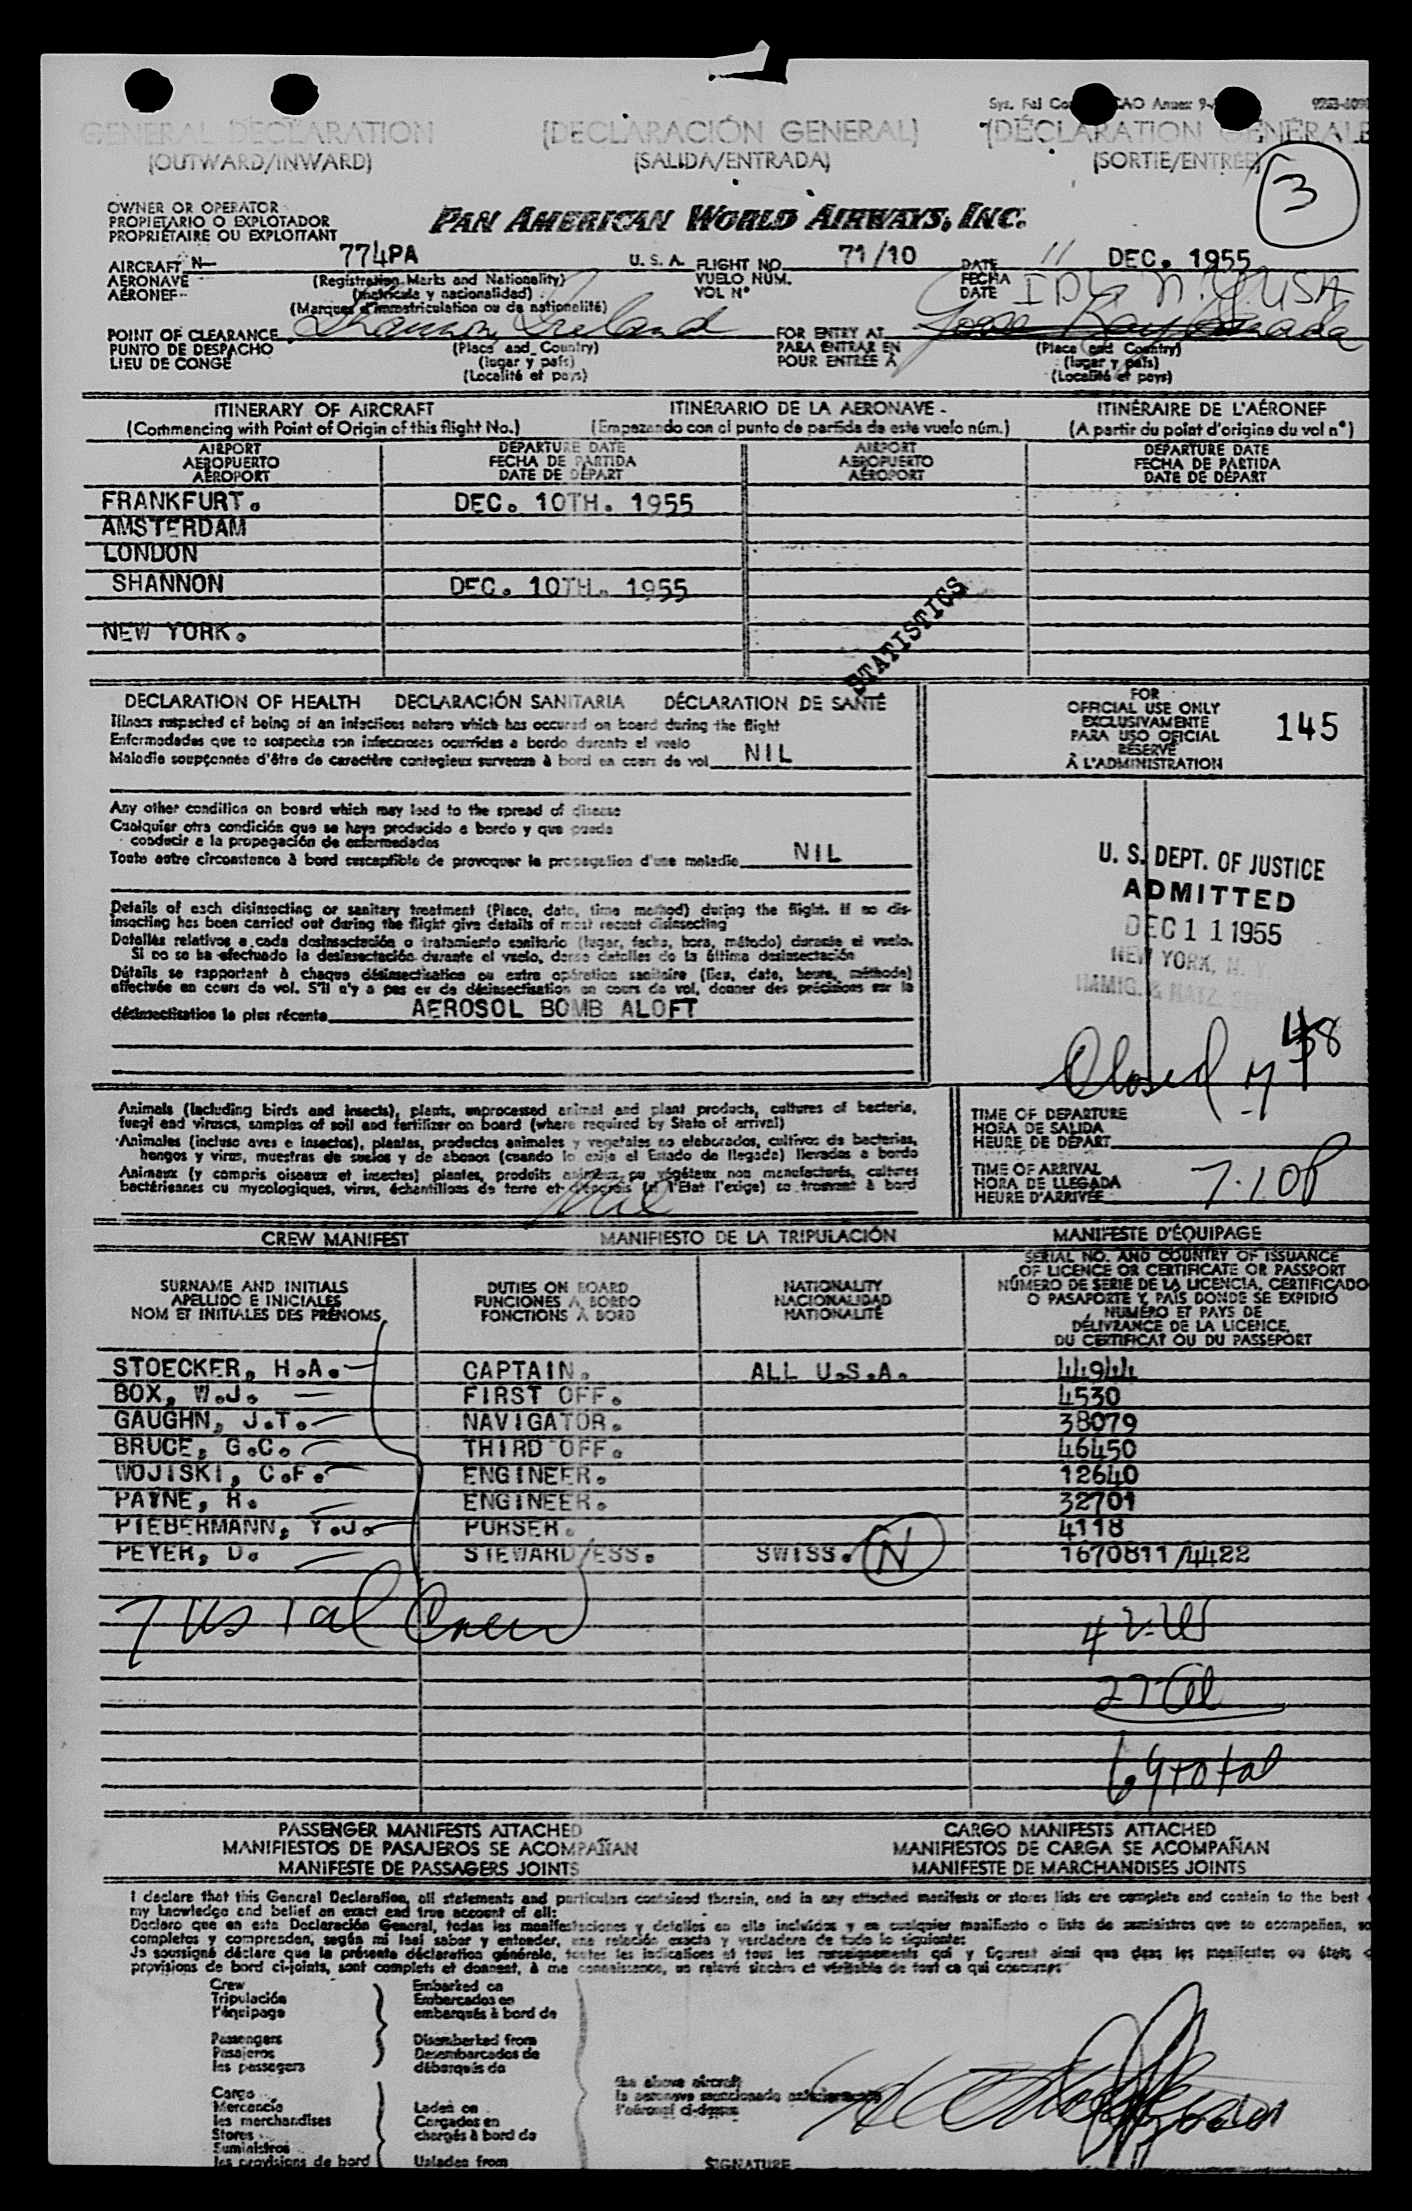 Sys. Fal CAO Annex 9-
GENERAL DECLARATION (DECLARACIÓN GENERAL) (DÉCLARATION GÉNÉRALE
(OUTWARD/INWARD) (SALIDA/ENTRADA) (SORTIE/ENTRÉE)
3
OWNER OR OPERATOR
PROPIETARIO O EXPLOTADOR
PROPRIÉTAIRE OU EXPLOITANT
PAN AMERICAN WORLD AIRWAYS, INC.
AIRCRAFT N- 774PA U. S. A. FLIGHT NO. 71/10 DATE 11 DEC. 1955
AERONAVE (Registration Marks and Nationality) VUELO NÚM. FECHA
AÉRONEF (matrícula y nacionalidad) VOL N° DATE
(Marques d'immatriculation ou de nationalité)
IDL N.Y. USA
POINT OF CLEARANCE Shannon, Ireland FOR ENTRY AT Goose Bay, Canada
PUNTO DE DESPACHO (Place and Country) PARA ENTRAR EN (Place and Country)
LIEU DE CONGÉ (lugar y país) POUR ENTRÉE À (lugar y país)
(Localité et pays) (Localité et pays)
ITINERARY OF AIRCRAFT ITINERARIO DE LA AERONAVE - ITINÉRAIRE DE L'AÉRONEF
(Commencing with Point of Origin of this flight No.) (Empezando con el punto de partida de este vuelo núm.) (A partir du point d'origine du vol n°)
AIRPORT DEPARTURE DATE AIRPORT DEPARTURE DATE
AEROPUERTO FECHA DE PARTIDA AEROPUERTO FECHA DE PARTIDA
AÉROPORT DATE DE DÉPART AÉROPORT DATE DE DÉPART
FRANKFURT. DEC. 10TH. 1955
AMSTERDAM
LONDON
SHANNON DEC. 10TH. 1955
NEW YORK.
STATISTICS
DECLARATION OF HEALTH DECLARACIÓN SANITARIA DÉCLARATION DE SANTÉ
Illness suspected of being of an infectious nature which has occured on board during the flight
Enfermedades que se sospecha son infecciosas ocurridas a bordo durante el vuelo
Maladie soupçonnée d'être de caractère contagieux survenue à bord en cours de vol NIL
FOR
OFFICIAL USE ONLY
EXCLUSIVAMENTE
PARA USO OFICIAL
RÉSERVÉ
À L'ADMINISTRATION
145
Any other condition on board which may lead to the spread of disease
Cualquier otra condición que se haya producido a bordo y que pueda
conducir a la propagación de enfermedades
Toute autre circonstance à bord susceptible de provoquer la propagation d'une maladie NIL
Details of each disinsecting or sanitary treatment (Place, date, time method) during the flight. If no dis-
insecting has been carried out during the flight give details of most recent disinsecting
Detalles relativos a cada desinsectación o tratamiento sanitario (lugar, fecha, hora, método) durante el vuelo.
Si no se ha efectuado la desinsectación durante el vuelo, dense detalles de la última desinsectación
Détails se rapportant à chaque désinsectisation ou autre opération sanitaire (lieu, date, heure, méthode)
effectuée en cours de vol. S'il n'y a pas eu de désinsectisation en cours de vol, donner des précisions sur la
désinsectisation la plus récente AEROSOL BOMB ALOFT
U. S. DEPT. OF JUSTICE
ADMITTED
DEC 11 1955
NEW YORK, N. Y.
IMMIG. & NATZ.
Closed
Animals (including birds and insects), plants, unprocessed animal and plant products, cultures of bacteria,
fungi and viruses, samples of soil and fertilizer on board (where required by State of arrival)
Animales (incluso aves e insectos), plantas, productos animales y vegetales no elaborados, cultivos de bacterias,
hongos y virus, muestras de suelos y de abonos (cuando lo exija el Estado de llegada) llevados a bordo
Animaux (y compris oiseaux et insectes) plantes, produits animaux ou végétaux non manufacturés, cultures
bactériennes ou mycologiques, virus, échantillons de terre et d'engrais (si l'Etat l'exige) se trouvant à bord
Nil
TIME OF DEPARTURE
HORA DE SALIDA
HEURE DE DÉPART
TIME OF ARRIVAL
HORA DE LLEGADA
HEURE D'ARRIVÉE 7.10P
CREW MANIFEST MANIFIESTO DE LA TRIPULACIÓN MANIFESTE D'ÉQUIPAGE
SURNAME AND INITIALS DUTIES ON BOARD NATIONALITY
APELLIDO E INICIALES FUNCIONES A BORDO NACIONALIDAD
NOM ET INITIALES DES PRÉNOMS FONCTIONS À BORD NATIONALITÉ
SERIAL NO. AND COUNTRY OF ISSUANCE
OF LICENCE OR CERTIFICATE OR PASSPORT
NÚMERO DE SERIE DE LA LICENCIA, CERTIFICADO
O PASAPORTE Y PAIS DONDE SE EXPIDIÓ
NUMÉRO ET PAYS DE
DÉLIVRANCE DE LA LICENCE,
DU CERTIFICAT OU DU PASSEPORT
STOECKER, H.A. CAPTAIN. ALL U.S.A. 44944
BOX, W.J. FIRST OFF. 4530
GAUGHN, J.T. NAVIGATOR. 38079
BRUCE, G.C. THIRD OFF. 46450
WOJISKI, C.F. ENGINEER. 12640
PAYNE, R. ENGINEER. 32701
PIEBERMANN, Y.J. PURSER. 4118
PEYER, D. STEWARD/ESS. SWISS. N 1670811/4422
7 US 1 al Crew
42 US
27 al
69 total
PASSENGER MANIFESTS ATTACHED CARGO MANIFESTS ATTACHED
MANIFIESTOS DE PASAJEROS SE ACOMPAÑAN MANIFIESTOS DE CARGA SE ACOMPAÑAN
MANIFESTE DE PASSAGERS JOINTS MANIFESTE DE MARCHANDISES JOINTS
I declare that this General Declaration, all statements and particulars contained therein, and in any attached manifests or stores lists are complete and contain to the best
my knowledge and belief an exact and true account of all:
Declaro que en esta Declaración General, todas las manifestaciones y detalles en ella incluidos y en cualquier manifiesto o lista de suministros que se acompañen, so
completos y comprenden, según mi leal saber y entender, una relación exacta y verdadera de todo lo siguiente:
Je soussigné déclare que la présente déclaration générale, toutes les indications et tous les renseignements qui y figurent ainsi que dans les manifestes ou états
provisions de bord ci-joints, sont complets et donnent, à ma connaissance, un relevé sincère et véritable de tout ce qui concerne
Crew Embarked on
Tripulación Embarcados en
l'équipage embarqués à bord de
Passengers Disembarked from
Pasajeros Desembarcados de
les passagers débarqués de
the above aircraft
la aeronave mencionada anteriormente
l'aéronef ci-dessus
Cargo
Mercancía Laden on
les marchandises Cargados en
Stores chargés à bord de
Suministros
les provisions de bord Unladen from
SIGNATURE